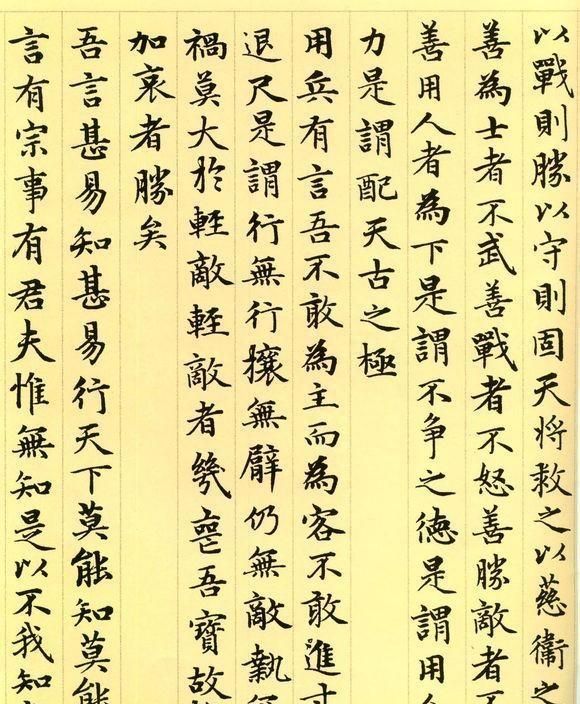 以戰則勝以守則固天將救之以慈衞之
善為士者不武善戰者不怒善勝敵者不
善用人者為下是謂不争之德是謂用
力是謂配天古之極
用兵有言吾不敢為主而為客不敢進寸
退尺是謂行無行攘無臂仍無敵執
禍莫大於輕敵輕敵者幾喪吾寶故
加哀者勝矣
吾言甚易知甚易行天下莫能知莫能
言有宗事有君夫惟無知是以不我知